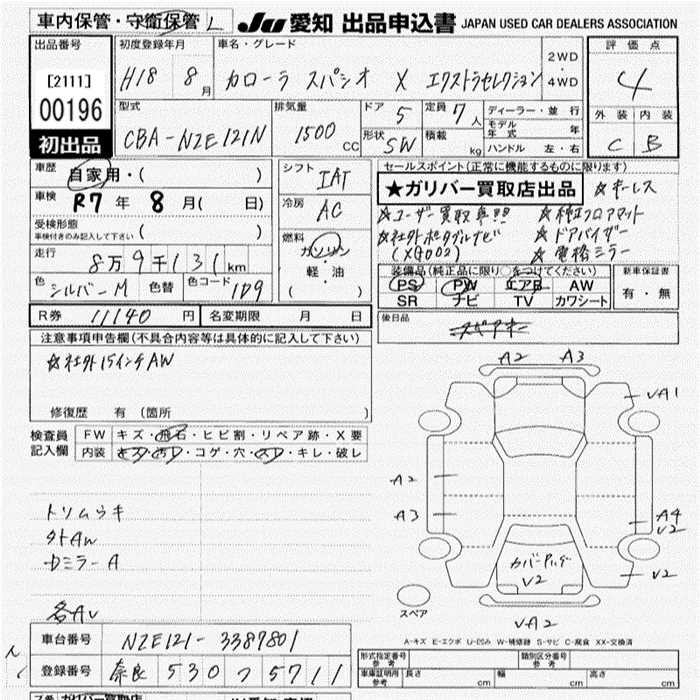 車内保管・守衛保管 L JU 愛知 出品申込書 JAPAN USED CAR DEALERS ASSOCIATION
出品番号 初度登録年月 車名・グレード 評価点
[2111] H18 8月 カローラ スパシオ X エクストラセレクション 2WD・4WD 4
00196 型式 排気量 ドア 5 定員 7人 ディーラー・並行 外装 内装
初出品 CBA-NZE121N 1500 CC 形状 SW 積載 kg モデル年式 年 C B
ハンドル 左・右
車歴 自家用・( ) シフト IAT セールスポイント(正常に機能するものに限ります)
車検 R7年 8月( 日) 冷房 AC ★ガリバー買取店出品 ☆キーレス
受検形態 車検付きのみ記入して下さい ( ) ☆ユーザー買取車!!! ☆純正フロアマット
走行 8万9千131km 燃料 ガソリン・軽・油 ( ) ☆社外ポータブルナビ ☆ドアバイザー
(XG002) ☆電格ミラー
色 シルバーM 色替 色コード 1D9 装備品(純正品に限り○をつけてください) 新車保証書
PS PW エアB AW 有・無
SR ナビ TV カワシート
R券 11140円 名変期限 月 日 後日品
注意事項申告欄(不具合内容等は具体的に記入して下さい)
☆社外15インチAW
修復歴 有 (箇所 )
検査員記入欄 FW キズ・飛石・ヒビ割・リペア跡・X要
内装 キズ・汚レ・コゲ・穴・スレ・キレ・破レ
A2 A3
VA1
A2
A3 A4
V2
トリムウキ
外AW
ドミラーA
カバーアリ
V2 V2
スペア
各AV VA2
A-キズ E-エクボ U-凹み W-補修跡 S-サビ C-腐食 XX-交換済
車台番号 NZE121-3387801
登録番号 奈良 530 つ 5711
形式指定番号 参考 類別区分番号 参考
車庫証明用 参考 長さ cm 幅 cm 高さ cm